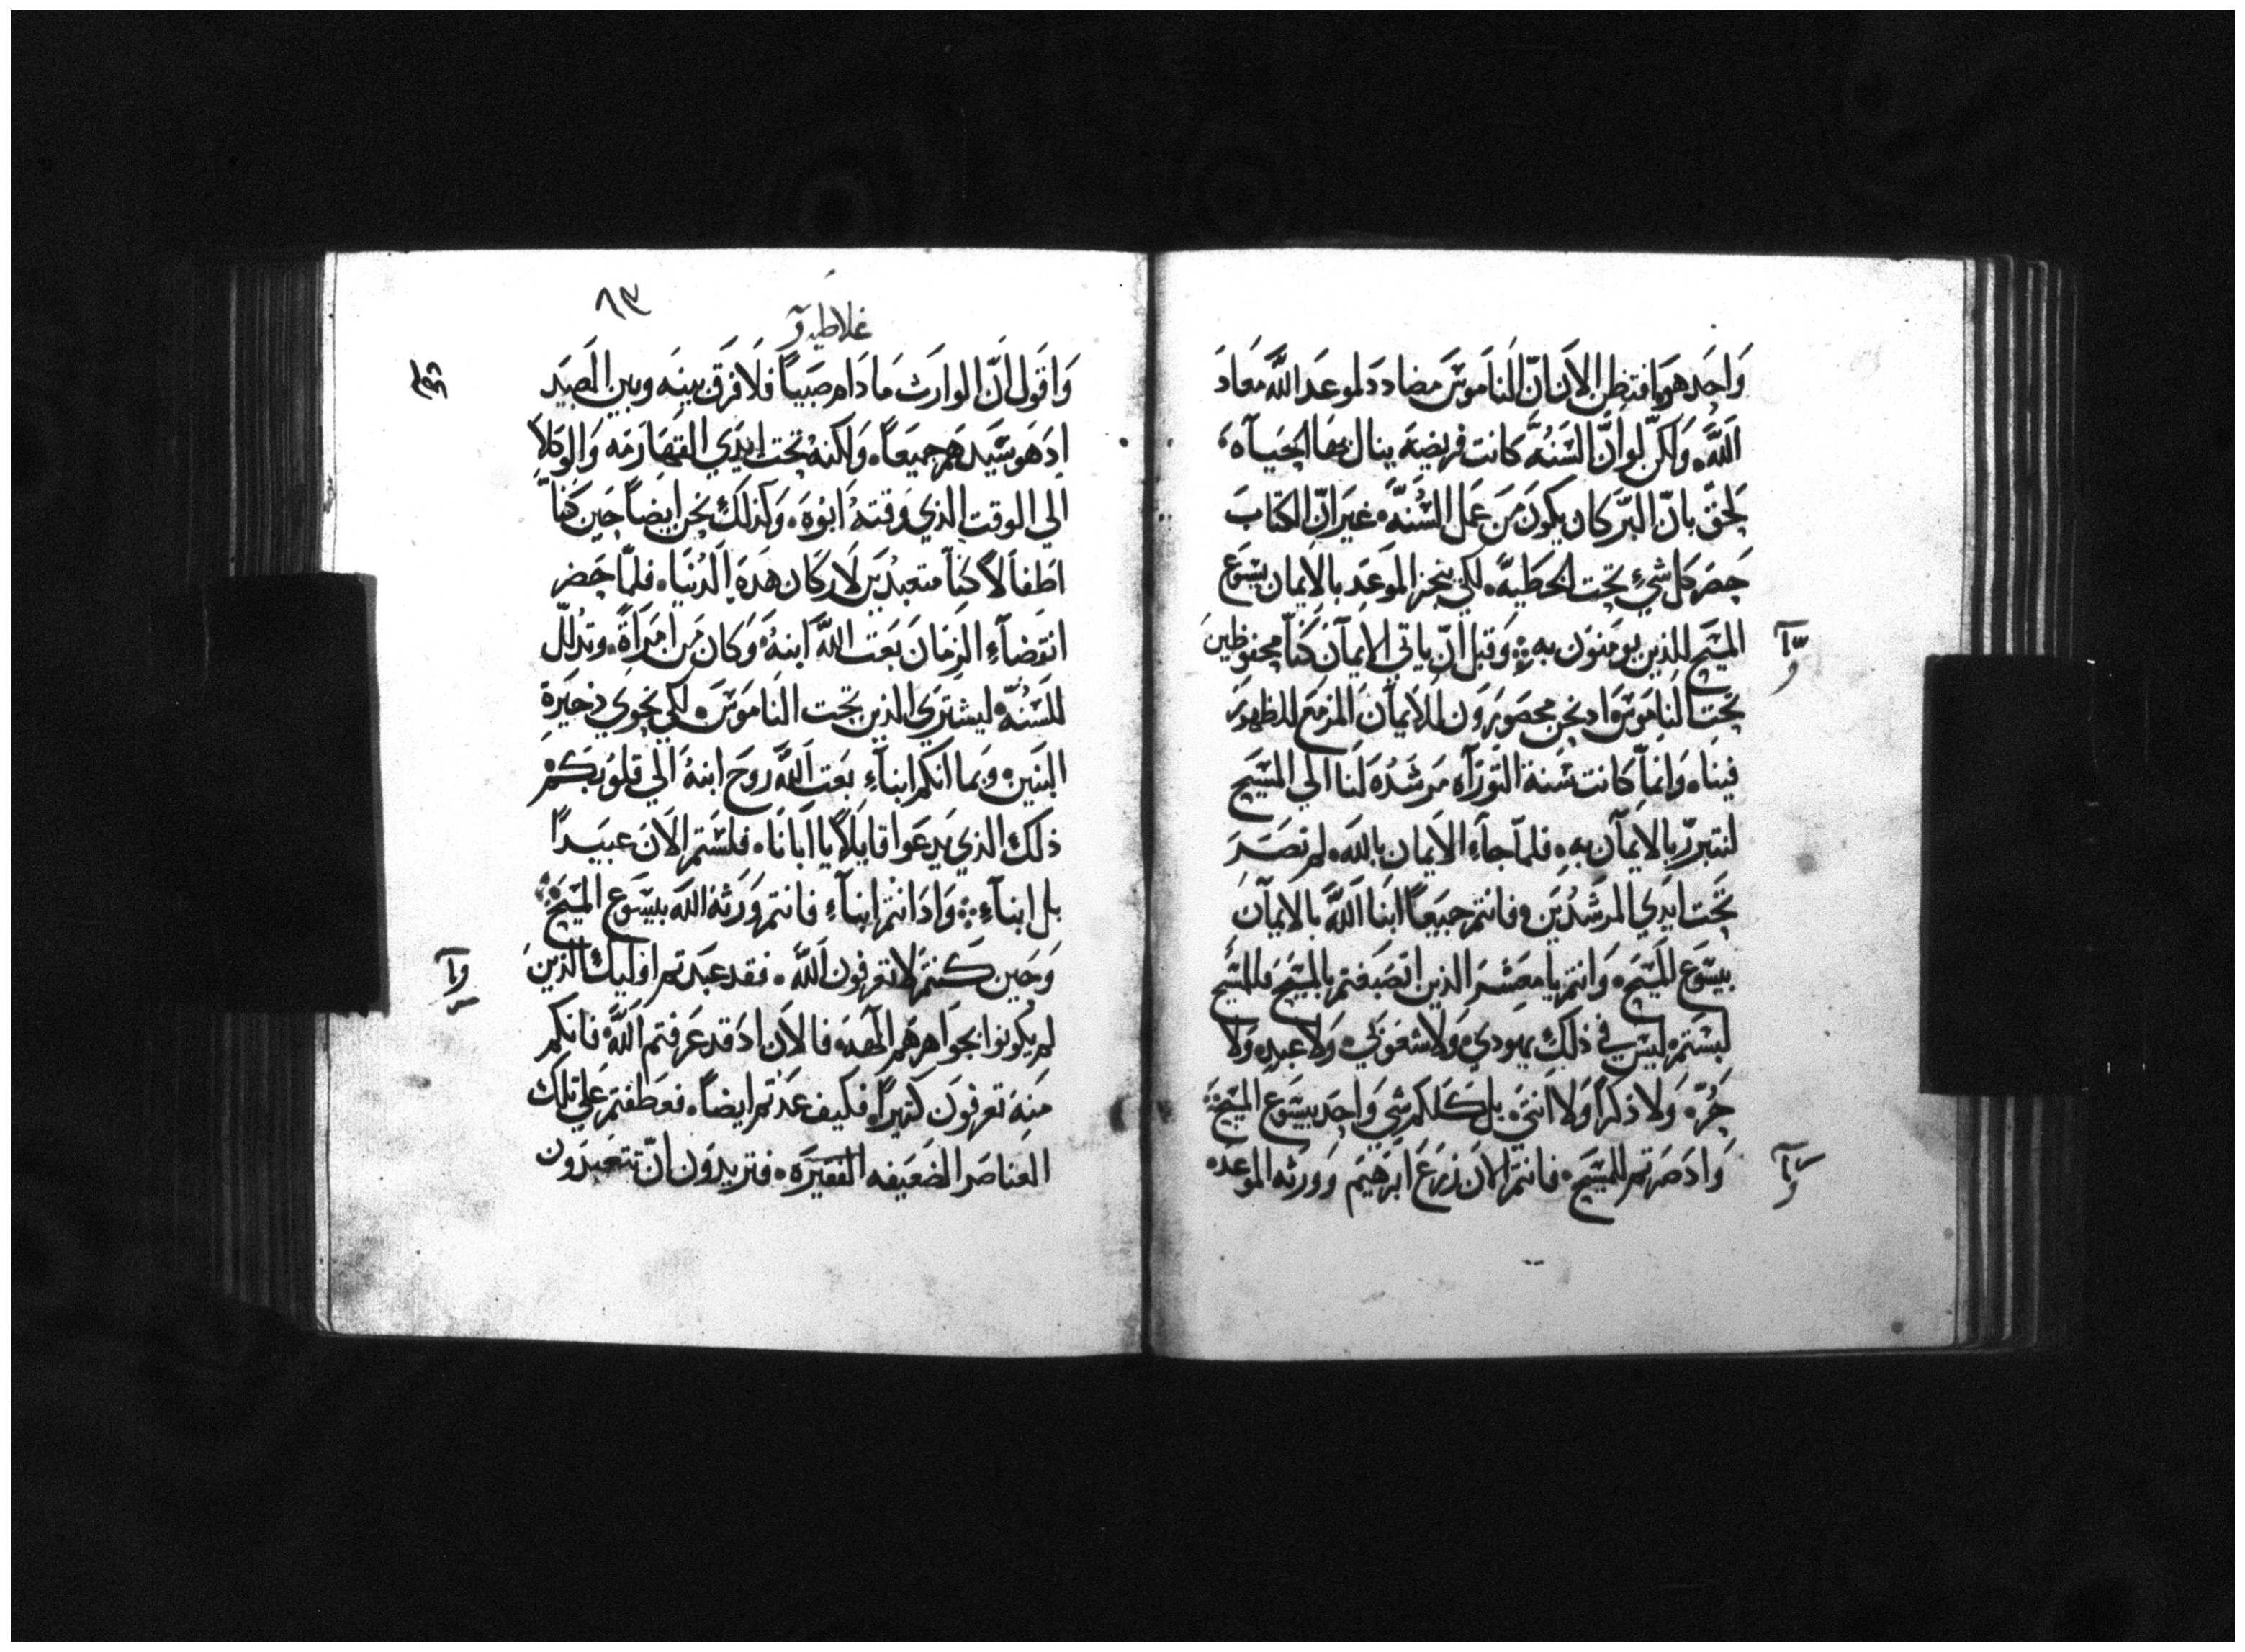 وَاحَد هَو افتظن الاَن انّ النَاموَسَ مضادد لموعد اللَّه مَعَادَ
اَللَّه وَلكنّ لو انَّ السَنُهَّ كانت فريضَه ينال بهَا الحَيَآه
لَحَقّ بانّ البَّر كان يكَونَ مَن عَمل السُنَّه غيَر انّ الكتَابَ
حَصَر كل شيٍ تحت الخطَيهَّ لكَي ينجز الموَعَد بالاِيمان بيسَوع
المسَيح للذين يومنَونَ به وَقبل انّ ياتي الاِيمآن كَنّا محفوظين
تحَت النامَوسَ اد نحن محصَورَوَن للاَيمآن المزمَع للظهورَ
فينا وَانمآ كانت سَنة التوَرَآه مَرشَدُه لَنا الي المسَيح
لنتبررّ بالاِيمآن بهِ فلمّا جآءِ الاَيمان باللَّه لم نصَرَ
تَحت ايدَي المرَشدُيَن فانتم جميَعاً ابنا اللَّه بالايمآن
بيسَوع المسَيح وَانتم يا معَشرَ الذين اتصَبَغتم بالمسَيح فَللمسَيح
لبسَتم ليسَ في ذلكِ يهودي وَلاَ شعَوبي وَلاَ عبدِ وَلا
حُرّ وَلاَ ذكراً وَلا انثيَ بل كَلكم شي وَاحِد بيسَوَع المسَيح
وَادَ صَرتم للمسَيح فانتم الاَن زرعَ ابرَهيَم وَورثه الموعد
غلاطيه
٨٣
وَاقَول اَنّ الوارَث مَا دَام صَبَياً فلَا فرَق بينَه وبين العَبيَد
اد هَو سَيَدهَم جميَعاً وَلكنهْ تحَت ايدَي القهَارَمَه وَالوَكلاَ
الي الوقت الذي وَقتهُ ابوُه وَكذلَك نحن ايضاً حِين كَنّا
اطَفاَلاً كنّا متعبدُيَن لاَركَان هَدَه الَدُنيَا فلمّا حَضر
انقَضآءِ الزمَانَ بعَت اللَّه اَبنهُ وَكان مَن امَرَاةً وتدُلل
للسَنُهّ ليشترَي الذين تحت النَاموَسَ لكَي نحَوي ذخيَرةِ
البنَين وبَما انكم ابنآءِ بعَت اَللَّه رَوحَ ابنهُ اَلي قلوُبكم
ذلك الذي يَدعَوا قايلاً يا ابانَا فلسَتم الاَنَ عبَيداً
بل ابنآءِ وَادَا انتم ابنآءِ فانتم وَرَثه اللَّه بيسَوَع المسَيح
وَحَين كنتم لاَ تعرفون اَللَّه فقد عبَدَتم اوَليكَ الذينَ
لم يكَونوا بجوَاهرهَم الهه فالاَن ادَ قد عَرَفتم اللَّه فانكم
مَنهَ تعرفَونَ كتيراً فكيف عَدَتم ايضاً فعَطفتم عَلي تلَك
العنَاصَر الضعَيفه الفقيَره فتريدَوَن انّ تتعَبدوَن